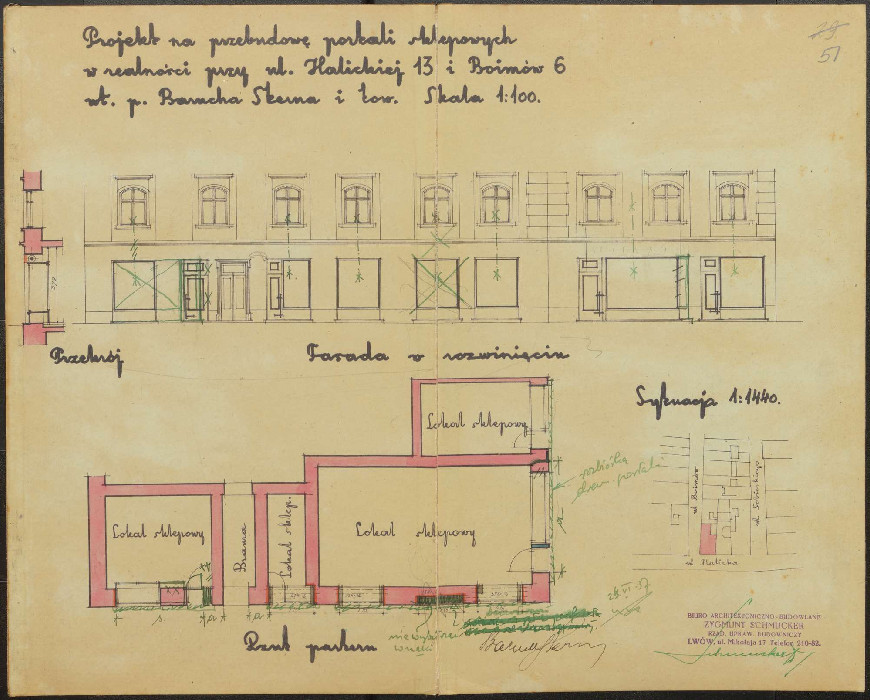 51
Projekt na przebudowę portali sklepowych
w realności przy ul. Halickiej 13 i Boimów 6
wł. p. Barucha Sterna i tow. Skala 1:100.
Przekrój
Fasada w rozwinięciu
Sytuacja 1:1440.
Lokal sklepowy
Lokal sklepowy
Brama
Lokal sklep.
Lokal sklepowy
ul. Boimów
ul. Halicka
Rzut parteru
BIURO ARCHITEKTONICZNO-BUDOWLANE
ZYGMUNT SCHMUCKER
RZĄD. UPRAW. BUDOWNICZY
LWÓW, ul. Mikołaja 17 Telefon 210-82.